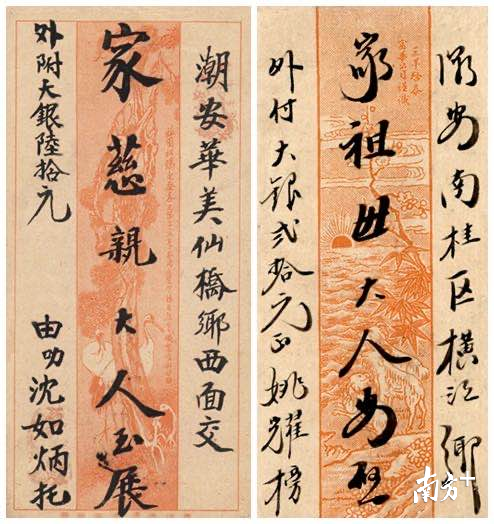 潮安華美仙橋鄉西面交
家慈親大人玉展
外附大銀陸拾元
由叻沈如炳托
潮安南桂区橫江鄉
家祖母大人安啟
外付大銀弍拾元正姚耀榜
南方+